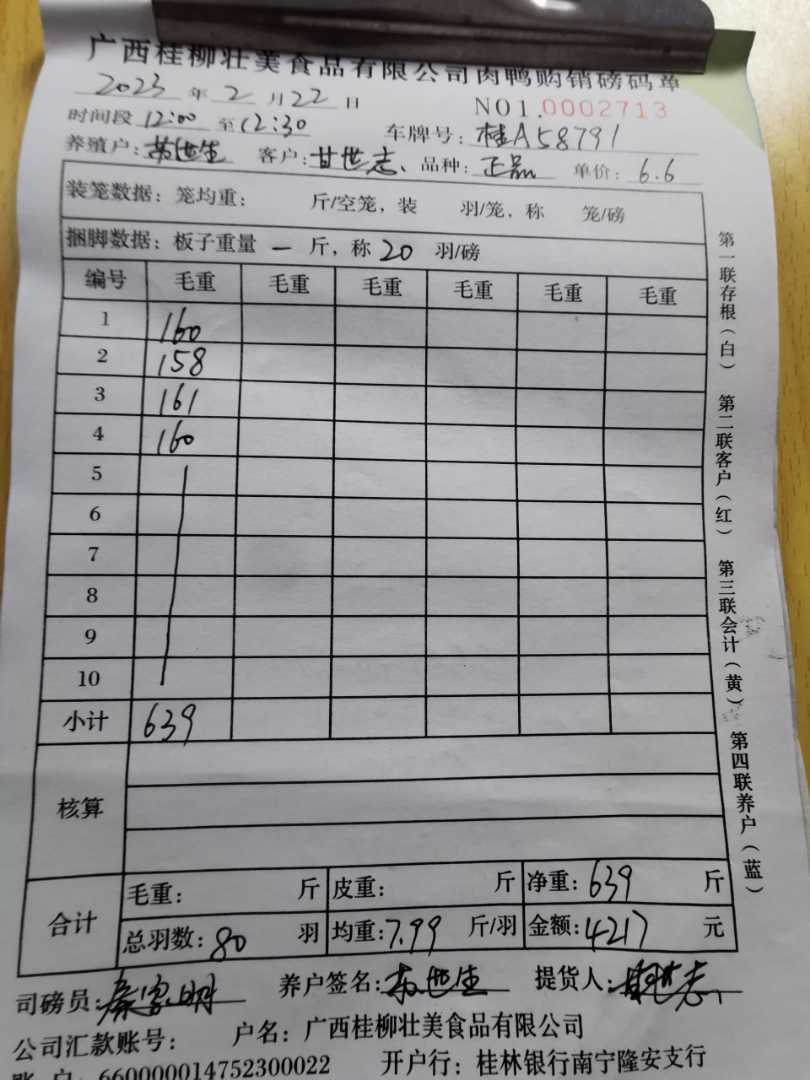 广西桂柳壮美食品有限公司肉鸭购销磅码单
2023 年 2 月 22 日 NO1.0002713
时间段 12:00 至 12:30 车牌号: 桂A58791
养殖户: 苏世生 客户: 甘世志 品种: 正品 单价: 6.6
装笼数据: 笼均重: 斤/空笼, 装 羽/笼, 称 笼/磅
捆脚数据: 板子重量 一 斤, 称 20 羽/磅
编号 毛重 毛重 毛重 毛重 毛重 毛重
1 160
2 158
3 161
4 160
5
6
7
8
9
10
小计 639
核算
合计 毛重: 斤 皮重: 斤 净重: 639 斤
总羽数: 80 羽 均重: 7.99 斤/羽 金额: 4217 元
司磅员: 养户签名: 苏世生 提货人: 甘世志
公司汇款账号: 户名: 广西桂柳壮美食品有限公司
账 户: 660000014752300022 开户行: 桂林银行南宁隆安支行
第一联存根(白) 第二联客户(红) 第三联会计(黄) 第四联养户(蓝)